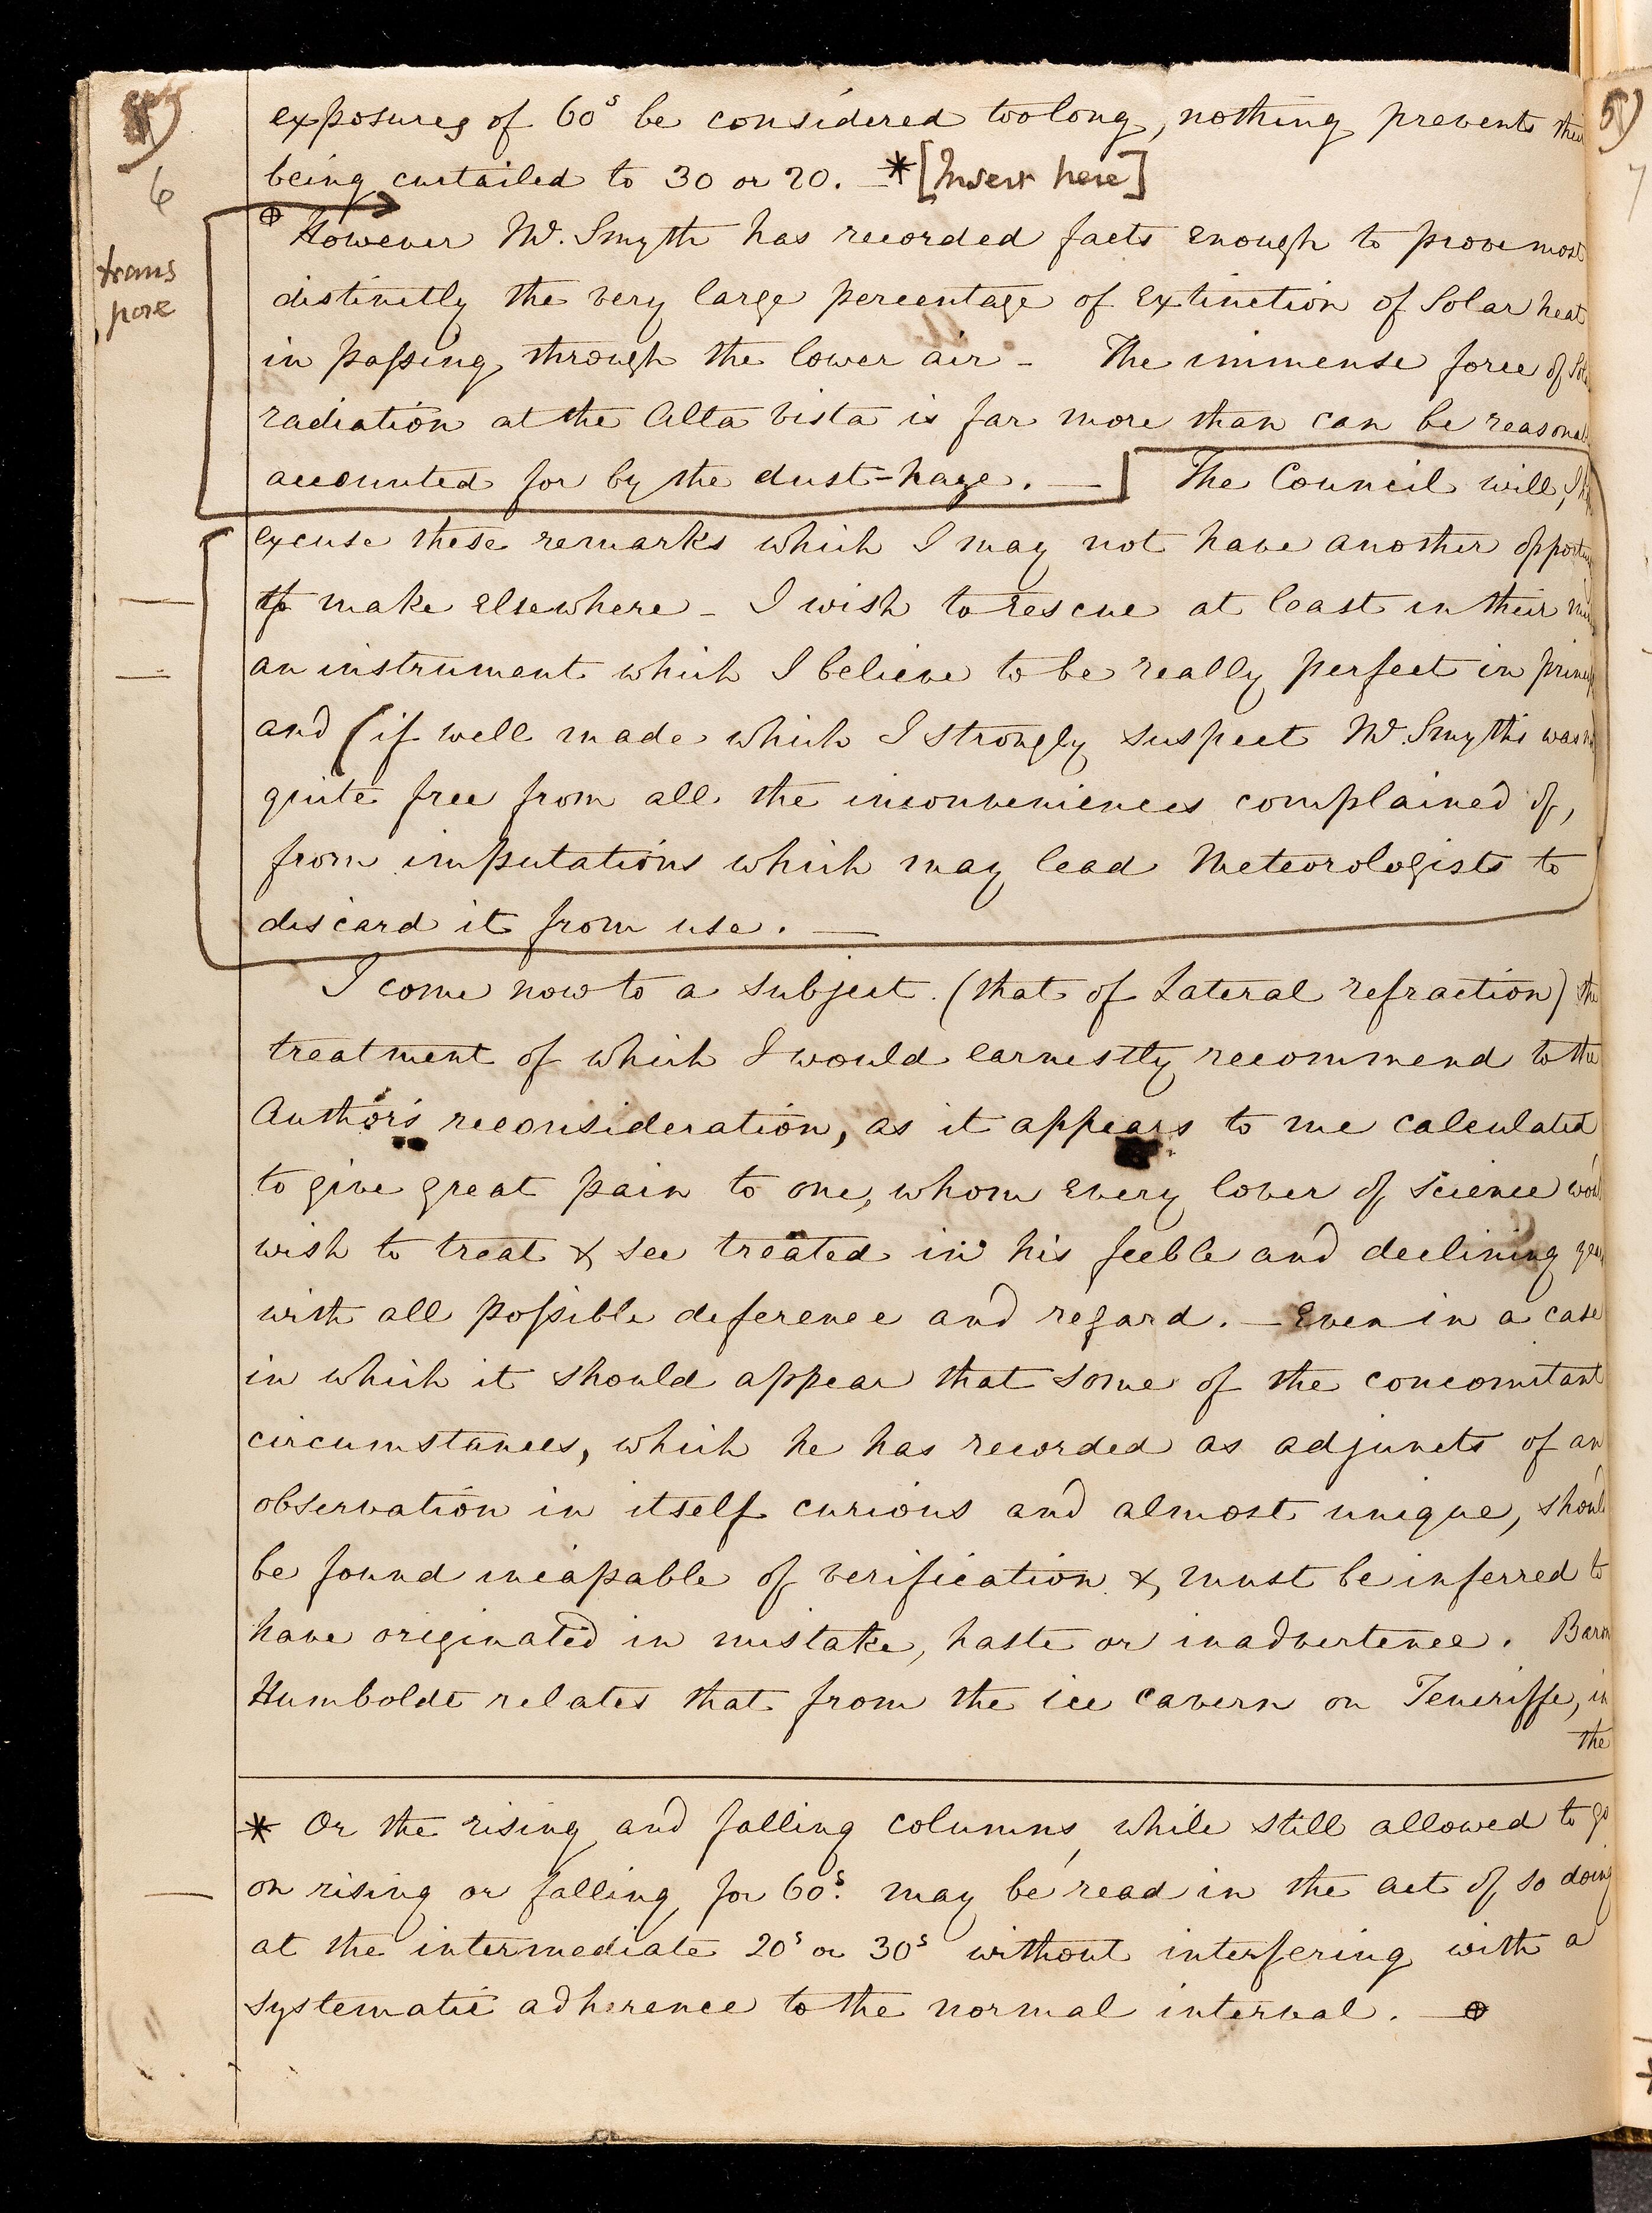 6
trans
pose
exposures of 60s be considered too long, nothing prevents their
being curtailed to 30 or 20. — * [Insert here]
⊕ However Mr. Smyth has recorded facts enough to prove most
distinctly the very large percentage of extinction of Solar heat
in passing through the lower air – The immense force of Sol
radiation at the Alta Vista is far more than can be reasonab
accounted for by the dust-haze. — The Council will, I h
excuse these remarks which I may not have another opportu
to make elsewhere – I wish to rescue at least in their mi
an instrument which I believe to be really perfect in princip
and (if well made which I strongly suspect Mr. Smyth's was n
quite free from all the inconveniences complained of,
from imputations which may lead Meteorologists to
discard it from use. —
I come now to a subject (that of Lateral refraction) the
treatment of which I would earnestly recommend to the
Author's reconsideration, as it appears to me calculated
to give great pain to one, whom every lover of science wou
wish to treat & see treated in his feeble and declining yea
with all possible deference and regard. — Even in a case
in which it should appear that some of the concomitant
circumstances, which he has recorded as adjuncts of an
observation in itself curious and almost unique, should
be found incapable of verification & must be inferred to
have originated in mistake, haste or inadvertence. Baron
Humboldt relates that from the ice cavern on Teneriffe, in
the
* Or the rising and falling columns, while still allowed to go
on rising or falling for 60s. may be read in the act of so doing
at the intermediate 20s or 30s without interfering with a
systematic adherence to the normal interval. — ⊕
5)
7
*